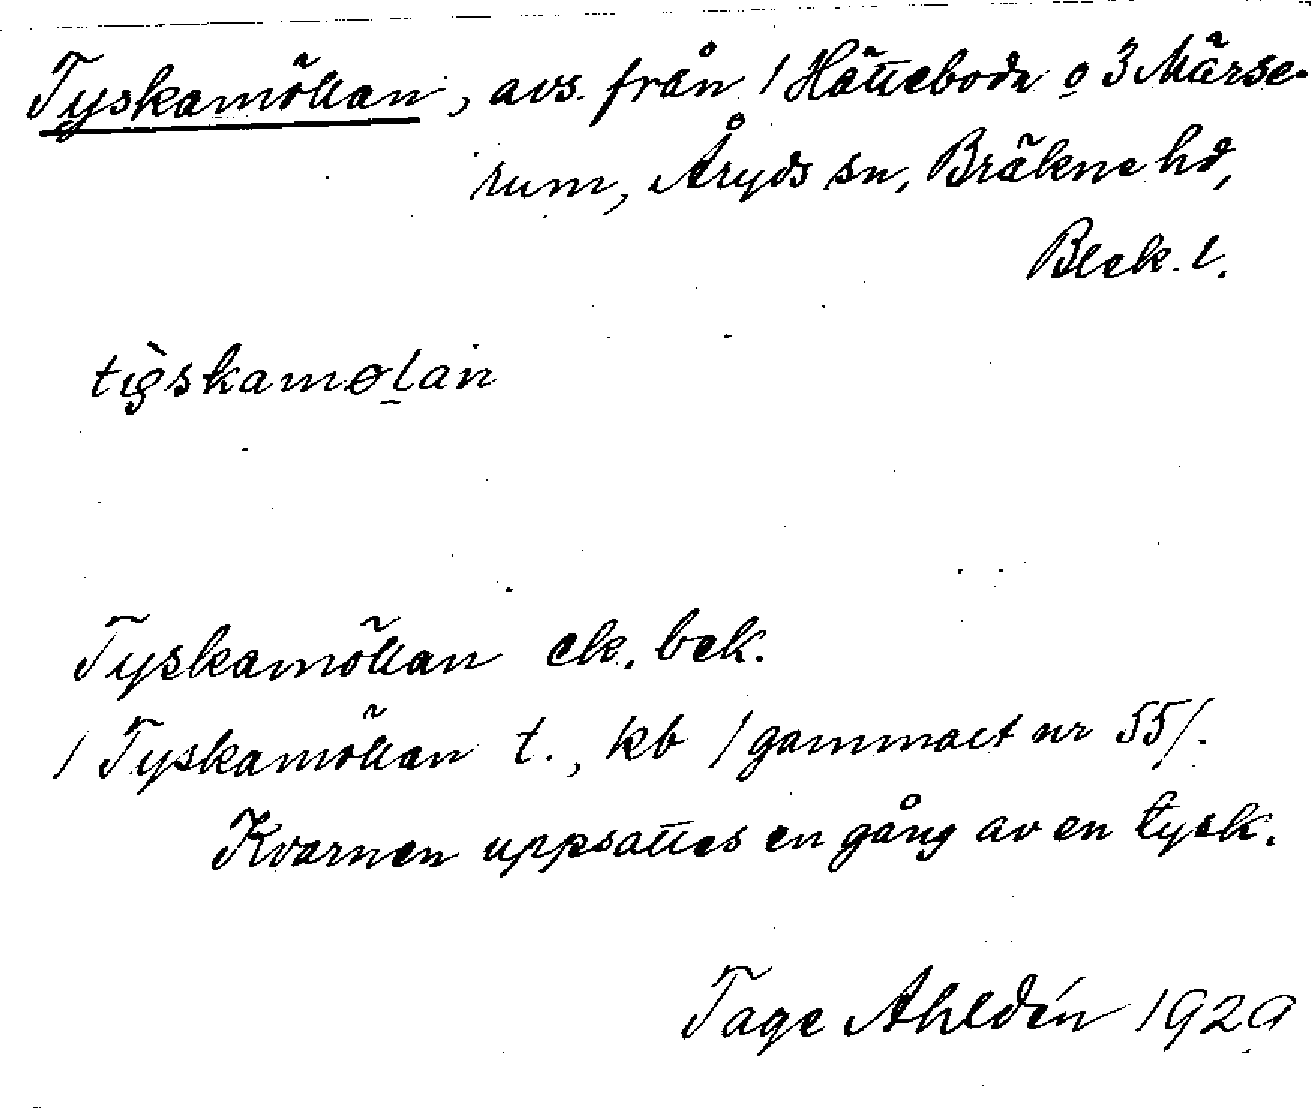 Tyskamöllan, avs. från 1 Hätteboda o 3 Märse-
rum, Åryds sn, Bräkne hd,
Blek. l.
tỳskamølan
Tyskamöllan ek. bek.
/ Tyskamöllan t., kb /gammalt nr 55/.
Kvarnen uppsattes en gång av en tysk.
Tage Ahldén 1929